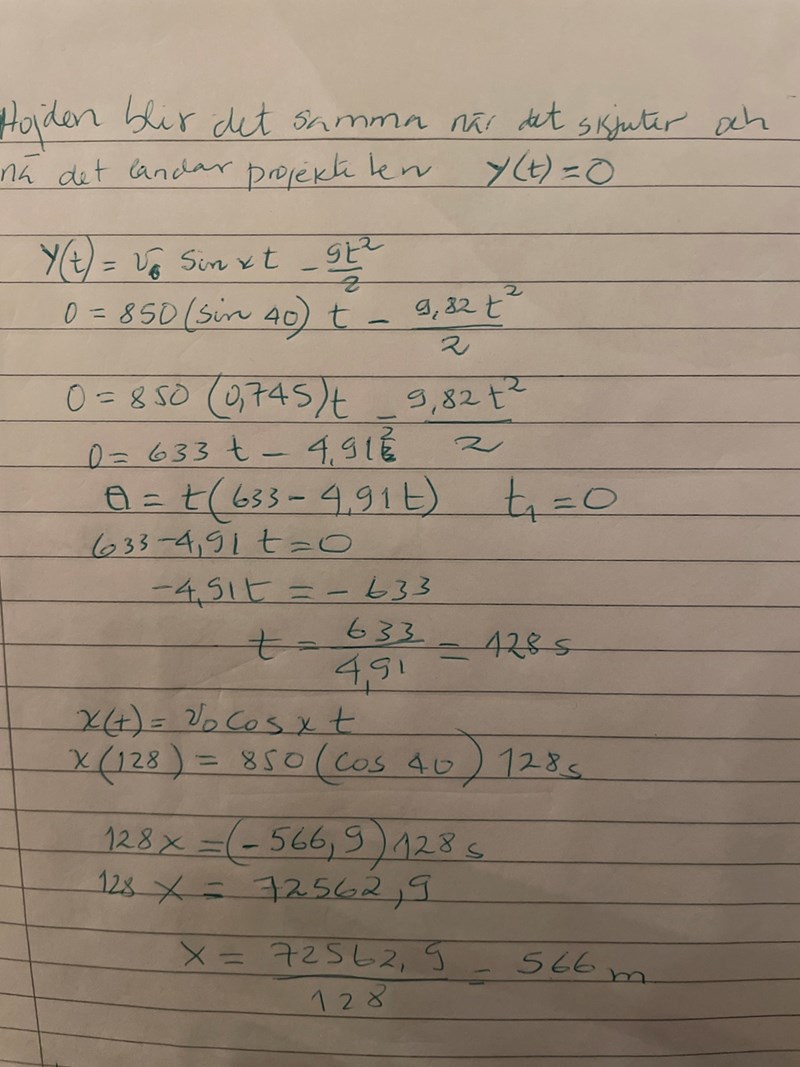 Hojden blir det samma när det skjuter och
nä det landar projektilen y(t)=0
y(t) = v₀ sin x t - gt²/2
0 = 850 (sin 40) t - 9,82 t²/2
0 = 850 (0,745)t - 9,82 t²/2
0 = 633 t - 4,91t²
0 = t(633 - 4,91t) t₁ = 0
633-4,91 t = 0
-4,91t = - 633
t = 633/4,91 = 128 s
x(t) = v₀ cos x t
x(128) = 850 (cos 40) 128s
128x = (- 566,9) 128 s
128 x = 72562,9
x = 72562,9/128 = 566 m